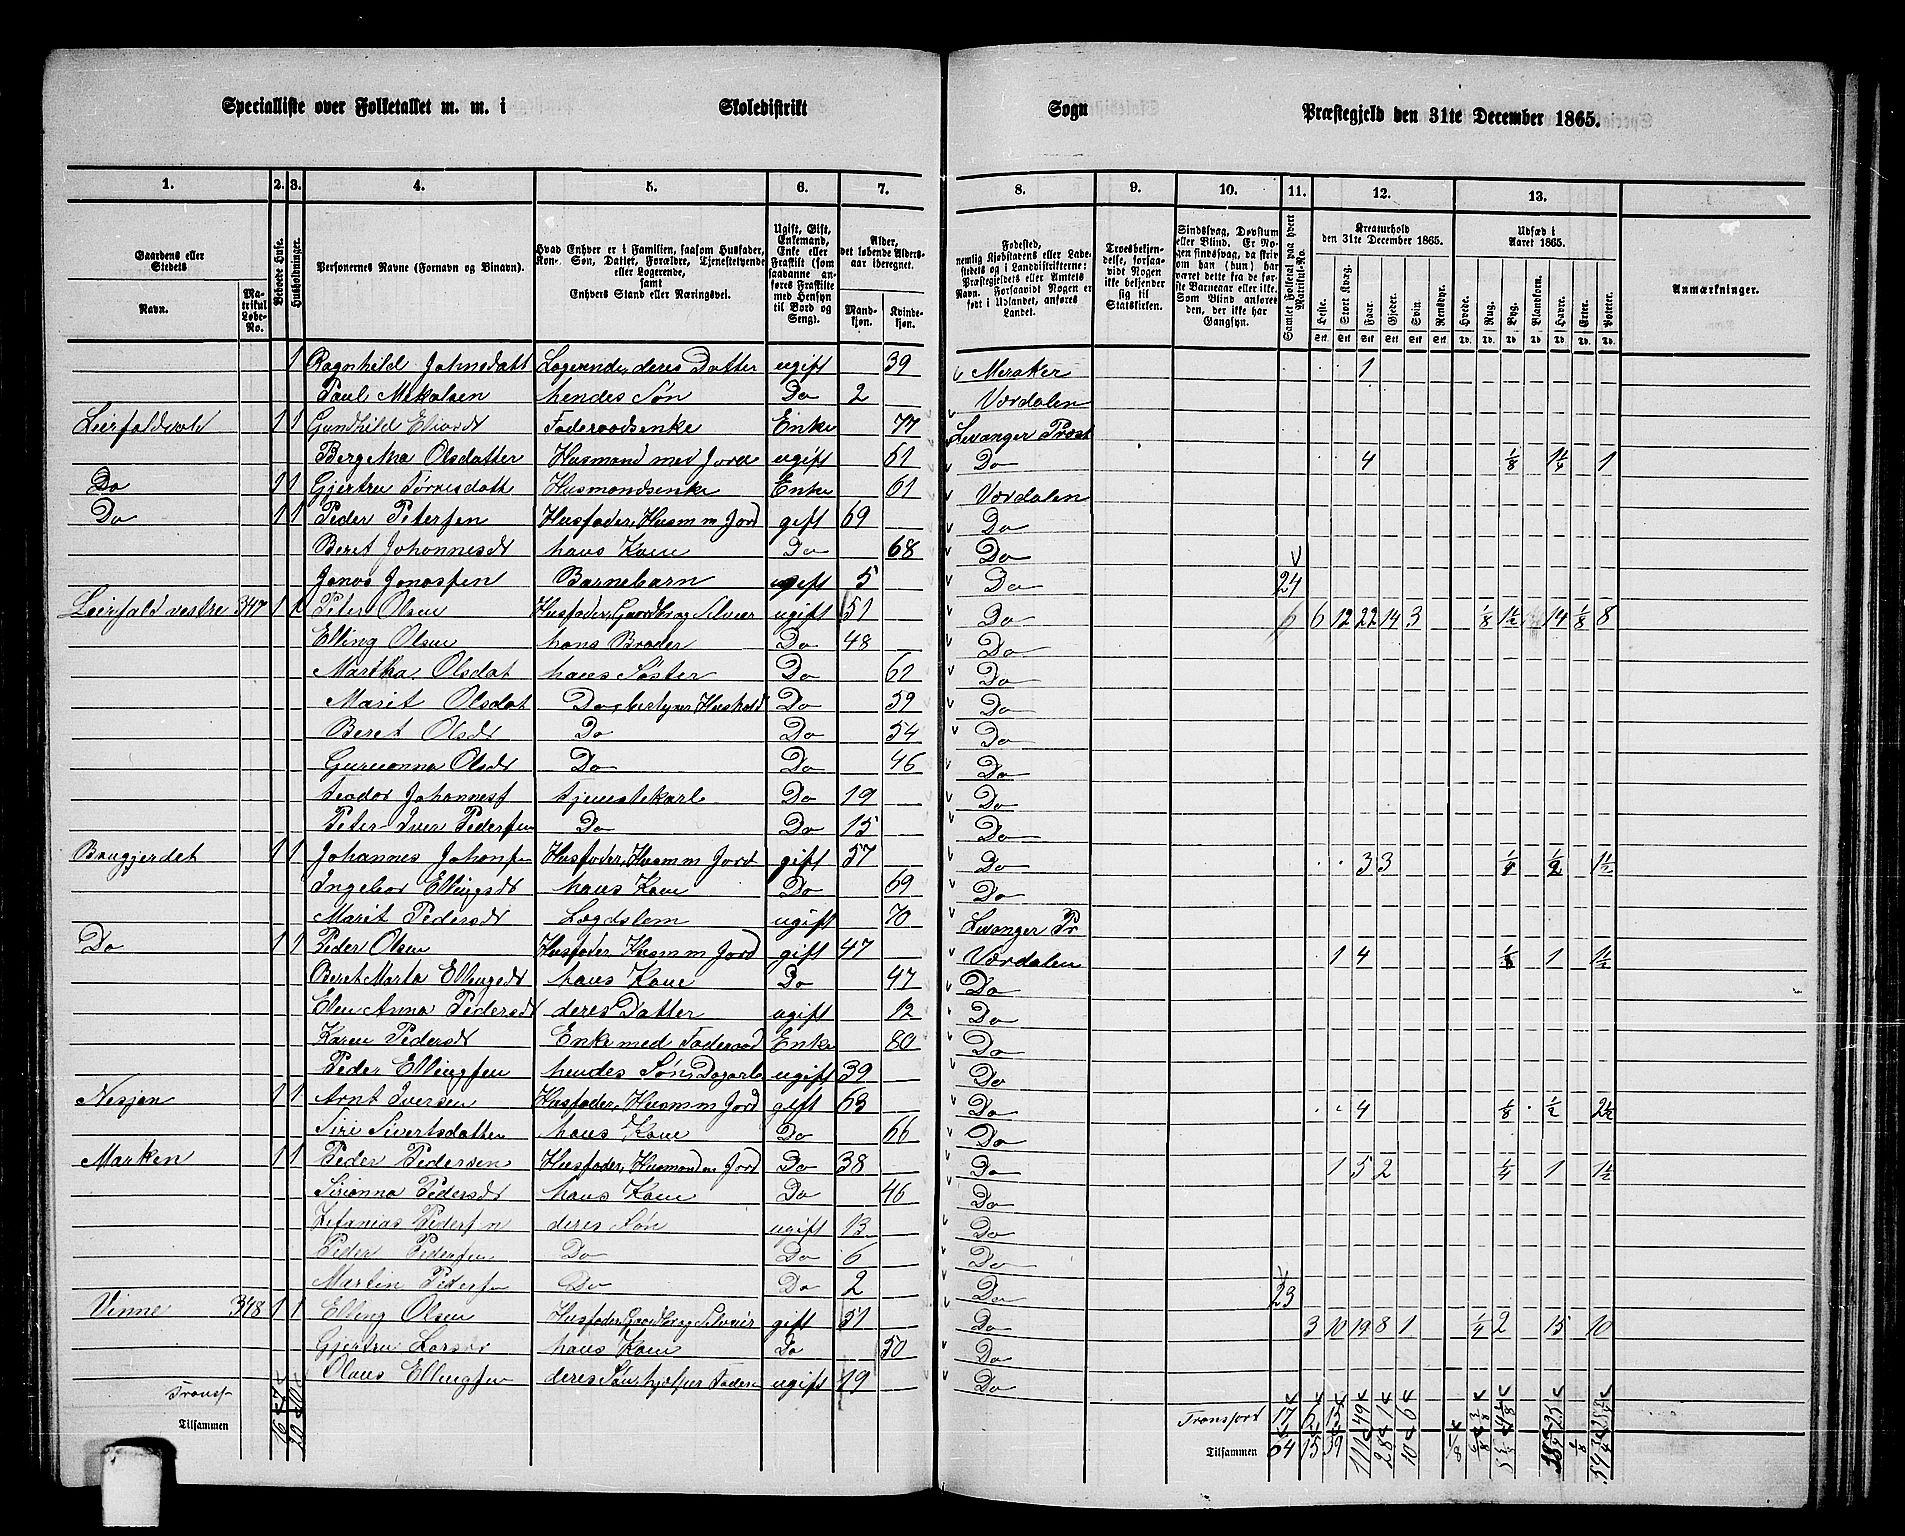 Specialliste over Folketallet m. m. i Skoledistrikt Sogn Præstegjeld den 31te December 1865.
1. 2. 3. 4. 5. 6. 7. 8. 9. 10. 11. 12. 13.
Gaardens eller Stedets Navn. Matrikul Løbe-No. Beboede Huse. Husholdninger. Personernes Navne (Fornavn og Binavn). Hvad Enhver er i Familien, saasom Husfader, Kone, Søn, Datter, Forældre, Tjenestetyende eller Logerende, samt Enhvers Stand eller Næringsvei. Ugift, Gift, Enkemand, Enke eller Fraskilt Alder, det løbende Aldersaar iberegnet. Mandkjøn. Kvindekjøn. Fødested, Anmærkninger.
Kreaturhold den 31te December 1865. Udsæd i Aaret 1865.
Heste. Stort Kvæg. Faar. Gjeder. Svin. Rensdyr. Hvede. Rug. Byg. Blandkorn. Havre. Erter. Poteter.
1 Ragnhild Johnsdatt Logerende, deres Datter ugift 39 Meraker 1
Paul Mikalsen hendes Søn Do 2 Værdalen
Leirfaldvald 1 1 Gundhild Elisardt Føderaadsenke Enke 77 Levanger Præst
Olsdatter Husmand med Jord ugift 51 Do 4 1/8 1 1/4 1
Do 1 1 Gjertru Tørrisdatt Husmandsenke Enke 61 Værdalen
Do 1 1 Peder Petersen Husfader, Husm m Jord gift 69 Do
Beret Johannesdt hans Kone Do 68 Do
Jonas Jonassen Barnebarn ugift 5 Do 24
Leirfald vestre 347 1 1 Peter Olsen Husfader, Gaardbr og Selveier ugift 51 Do 6 6 12 22 14 3 1/8 1 1/2 14 1/8 8
Elling Olsen hans Broder Do 48 Do
Martha Olsdat hans Søster Do 62 Do
Marit Olsdat Do, bestyrer Hushold Do 59 Do
Beret Olsdt Do Do 54 Do
Gurianna Olsdt Do Do 46 Do
Teodor Johannesf tjenestekarl Do 19 Do
Peter Iver Pedersen Do Do 15 Do
Brugjerdet 1 1 Johannes Johansen Husfader, Husm m Jord gift 57 Do 3 3 1/4 1/2 1 1/2
Ingebor Ellingsdt hans Kone Do 69 Do
Marit Pedersdt Lægdslem ugift 70 Levanger Pr
Do 1 1 Peder Olsen Husfader, Husm m Jord gift 47 Værdalen 1 4 1/8 1 1 1/2
Beret Marta Ellingsdt hans Kone Do 47 Do
Elen Anna Pedersdt deres Datter ugift 12 Do
Karen Pedersdt Enke med Føderaad Enke 80 Do
Peder Ellingsen hendes Søn, Dagarb ugift 39 Do
Nesjen 1 1 Arnt Iversen Husfader, Husm m Jord gift 63 Do 4 1/8 1/2 2 1/2
Siri Sivertsdatter hans Kone Do 66 Do
Marken 1 1 Peder Pedersen Husfader, Husmand m Jord Do 38 Do 1 5 2 1/4 1 1 1/2
Sirianna Pedersdt hans Kone Do 46 Do
Zefanias Pedersen deres Søn ugift 13 Do
Peder Pedersen Do Do 6 Do
Martin Pedersen Do Do 2 Do 23
Vinne 348 1 1 Elling Olsen Husfader, Gaardbr og Selveier gift 51 Do 3 10 19 8 1 1/4 2 15 10
Gjertru Larsdt hans Kone Do 50 Do
Olaus Ellingsen deres Søn, hjelper Faderen ugift 19 Do
Transp 7 10 Transport 17 6 13 49 14 6
Tilsammen 16 20 Tilsammen 64 15 39 111 28 10